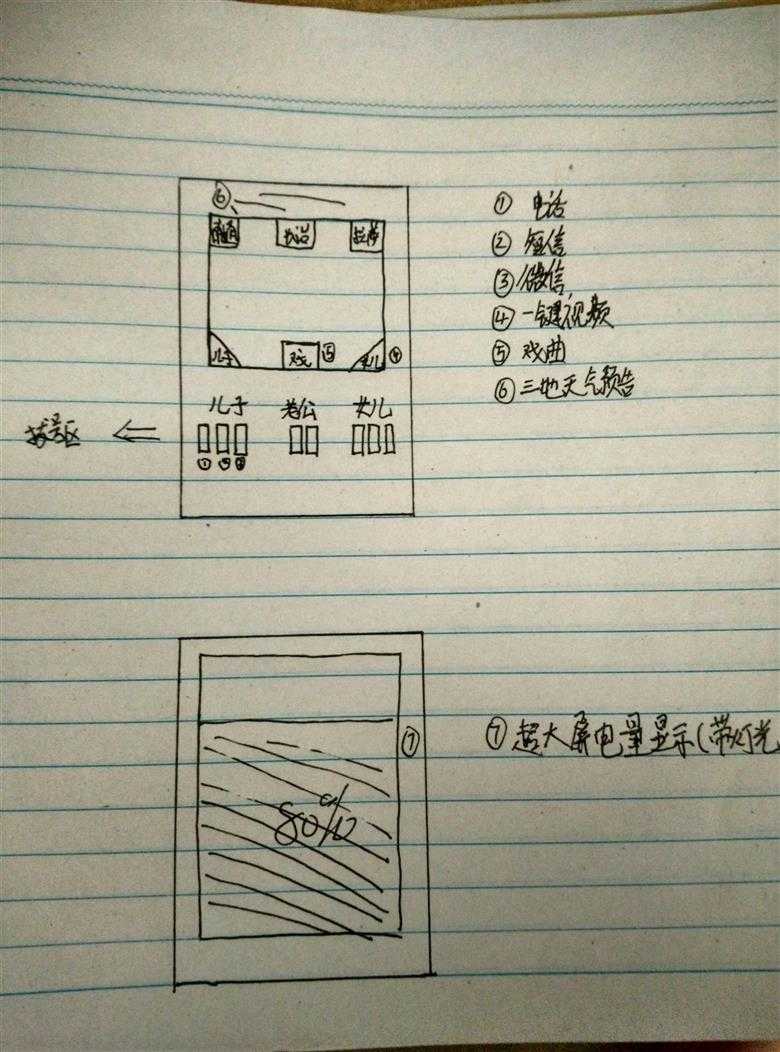 ⑥
南通 长治 拉萨
儿子 戏 ⑤ 女儿 ④
儿子 老公 女儿
拨号区
① ② ③
① 电话
② 短信
③ 微信
④ 一键视频
⑤ 戏曲
⑥ 三地天气预告
80%
⑦
⑦ 超大屏电量显示(带灯光